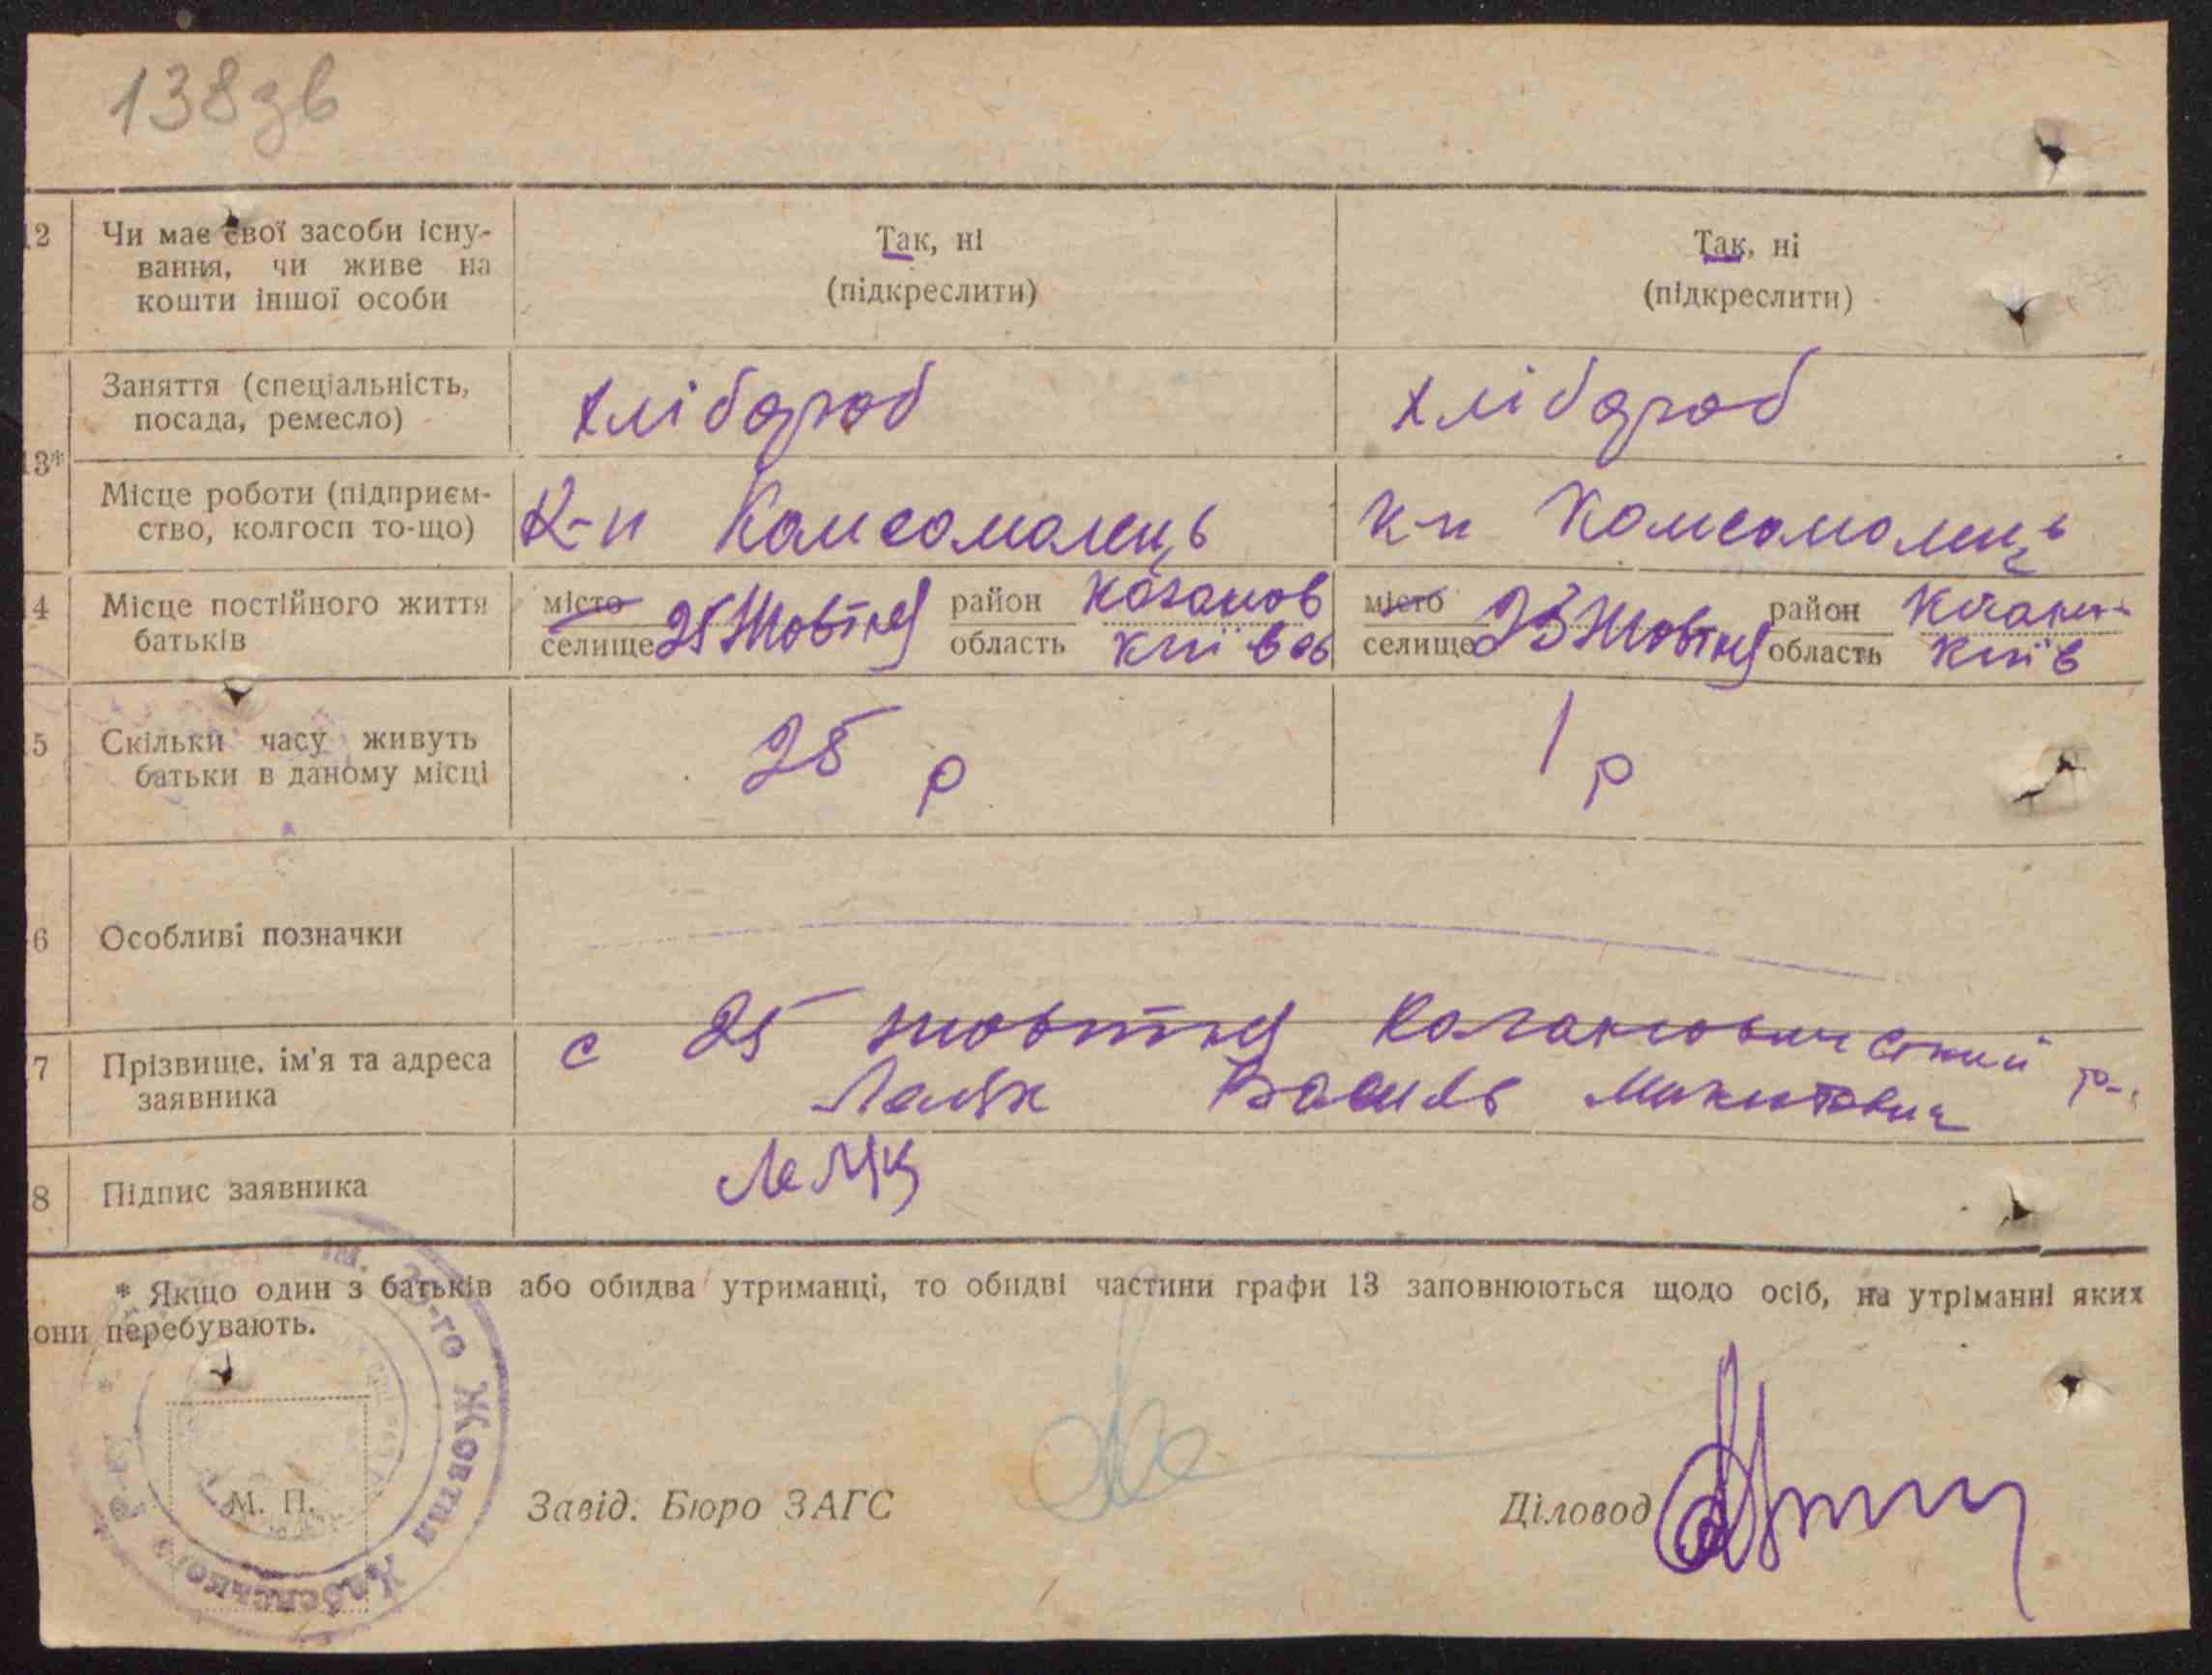 138зв
12 Чи має свої засоби існу-
вання, чи живе на
кошти іншої особи
Так, ні
(підкреслити)
Так, ні
(підкреслити)
13*
Заняття (спеціальність,
посада, ремесло)
хлібороб
хлібороб
Місце роботи (підприєм-
ство, колгосп то-що)
к-п Комсомолець
к-п Комсомолець
4 Місце постійного життя
батьків
місто
селище 25 Жовтня
район
область Київсь
місто
селище 25 Жовтня
район
область Київ
5 Скільки часу живуть
батьки в даному місці
25 р
1 р
6 Особливі позначки
7 Прізвище, ім'я та адреса
заявника
с 25 жовтня Кагановичський р-
Василь Микитович
8 Підпис заявника
* Якщо один з батьків або обидва утриманці, то обидві частини графи 13 заповнюються щодо осіб, на утріманні яких
они перебувають.
ім. 25-го Жовтня Хабенського
М. П.
Завід. Бюро ЗАГС
Діловод